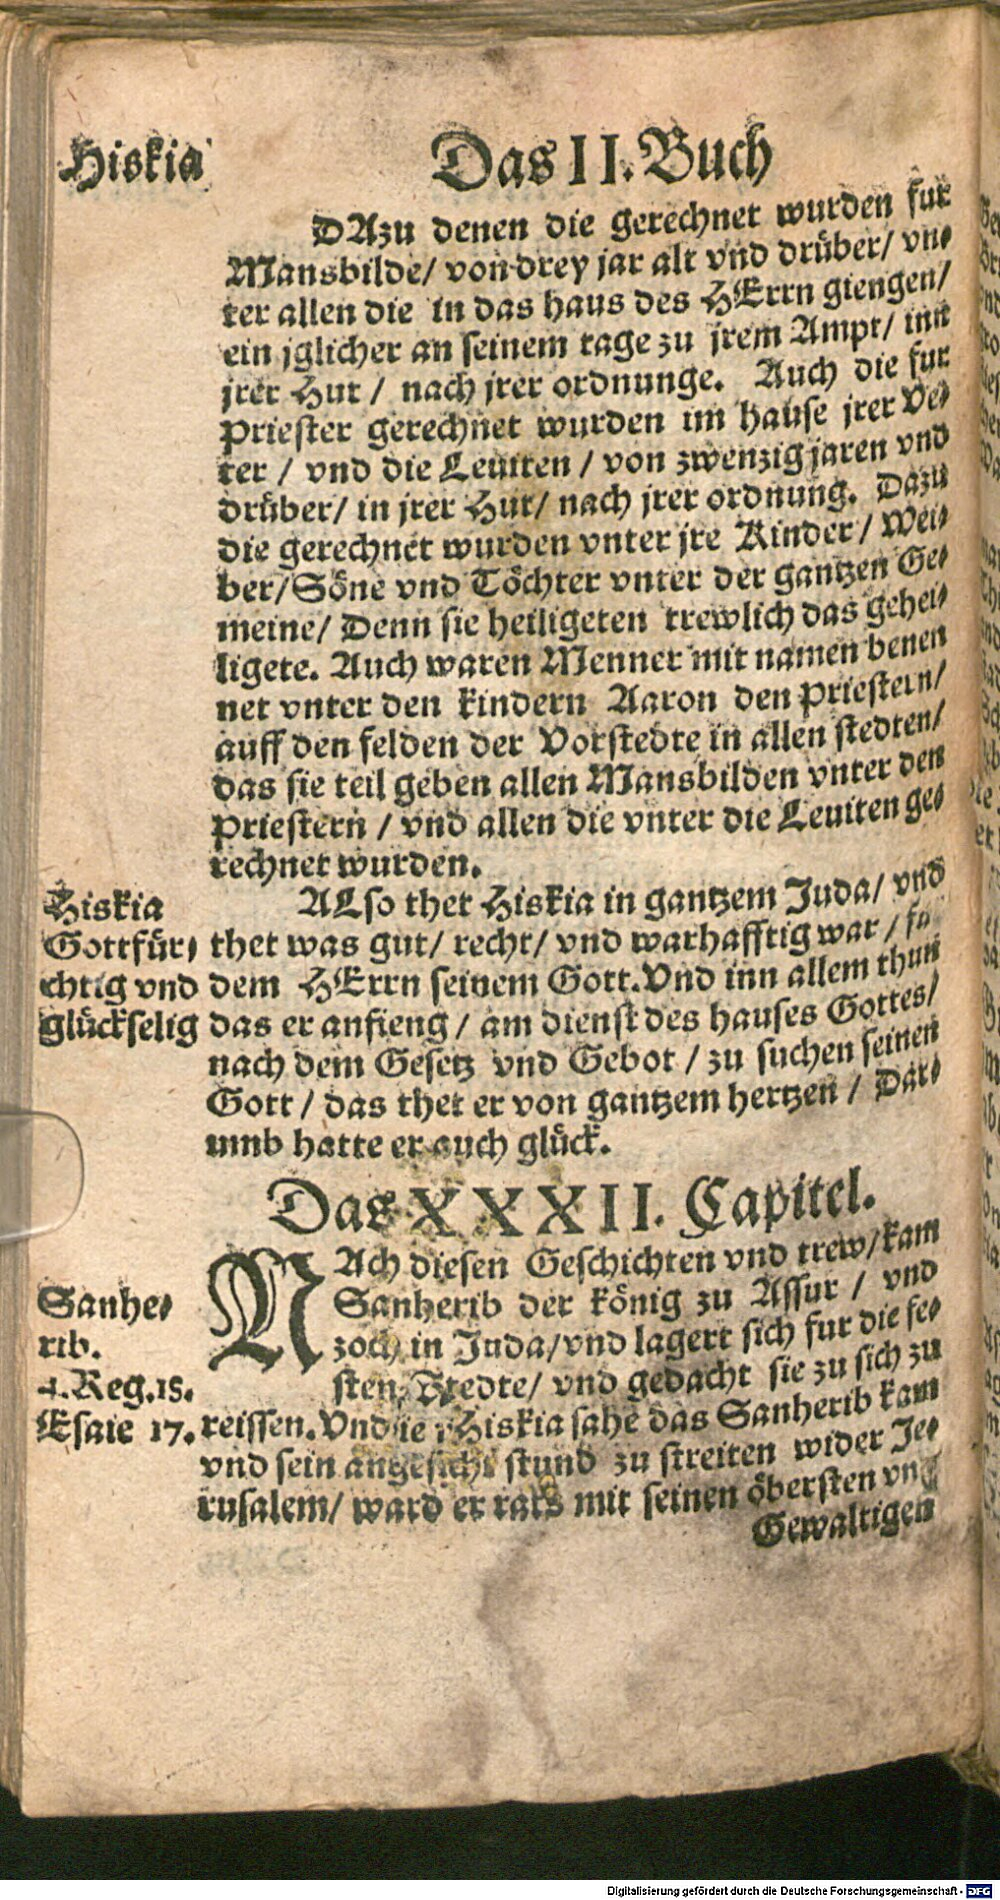 Hiskia
Das II. Buch
DAzu denen die gerechnet wurden fur
Mansbilde/ von drey jar alt vnd drüber/ vn⸗
ter allen die in das haus des HErrn giengen/
ein jglicher an seinem tage zu jrem Ampt/ inn
jrer Hut / nach jrer ordnunge. Auch die fur
Priester gerechnet wurden im hause jrer Ve⸗
ter / vnd die Leuiten / von zwenzig jaren vnd
drüber/ in jrer Hut/ nach jrer ordnung. Dazu
die gerechnet wurden vnter jre Kinder / Wei⸗
ber/Söne vnd Töchter vnter der gantzen Ge⸗
meine/ Denn sie heiligeten trewlich das gehei⸗
ligete. Auch waren Menner mit namen benen
net vnter den kindern Aaron den Priestern/
auff den felden der Vorstedte in allen stedten/
das sie teil geben allen Mansbilden vnter den
Priestern / vnd allen die vnter die Leuiten ge⸗
rechnet wurden.
Hiskia
Gottfür⸗
chtig vnd
glückselig
ALso thet Hiskia in gantzem Juda/ vnd
thet was gut/ recht/ vnd warhafftig war / fu
dem HErrn seinem Gott. Vnd inn allem thun
das er anfieng / am dienst des hauses Gottes/
nach dem Gesetz vnd Gebot / zu suchen seinen
Gott / das thet er von gantzem hertzen / Dar⸗
umb hatte er auch glück.
Das XXXII. Capitel.
Sanhe⸗
rib.
4. Reg. 18.
Esaie 17.
NAch diesen Geschichten vnd trew/kam
Sanherib der könig zu Assur / vnd
zoch in Juda/vnd lagert sich fur die fe⸗
sten Stedte/ vnd gedacht sie zu sich zu
reissen. Vnd Hiskia sahe das Sanherib kam
vnd sein angesicht stund zu streiten wider Je⸗
rusalem/ ward er rats mit seinen öbersten vn
Gewaltigen
Digitalisierung gefördert durch die Deutsche Forschungsgemeinschaft - DFG